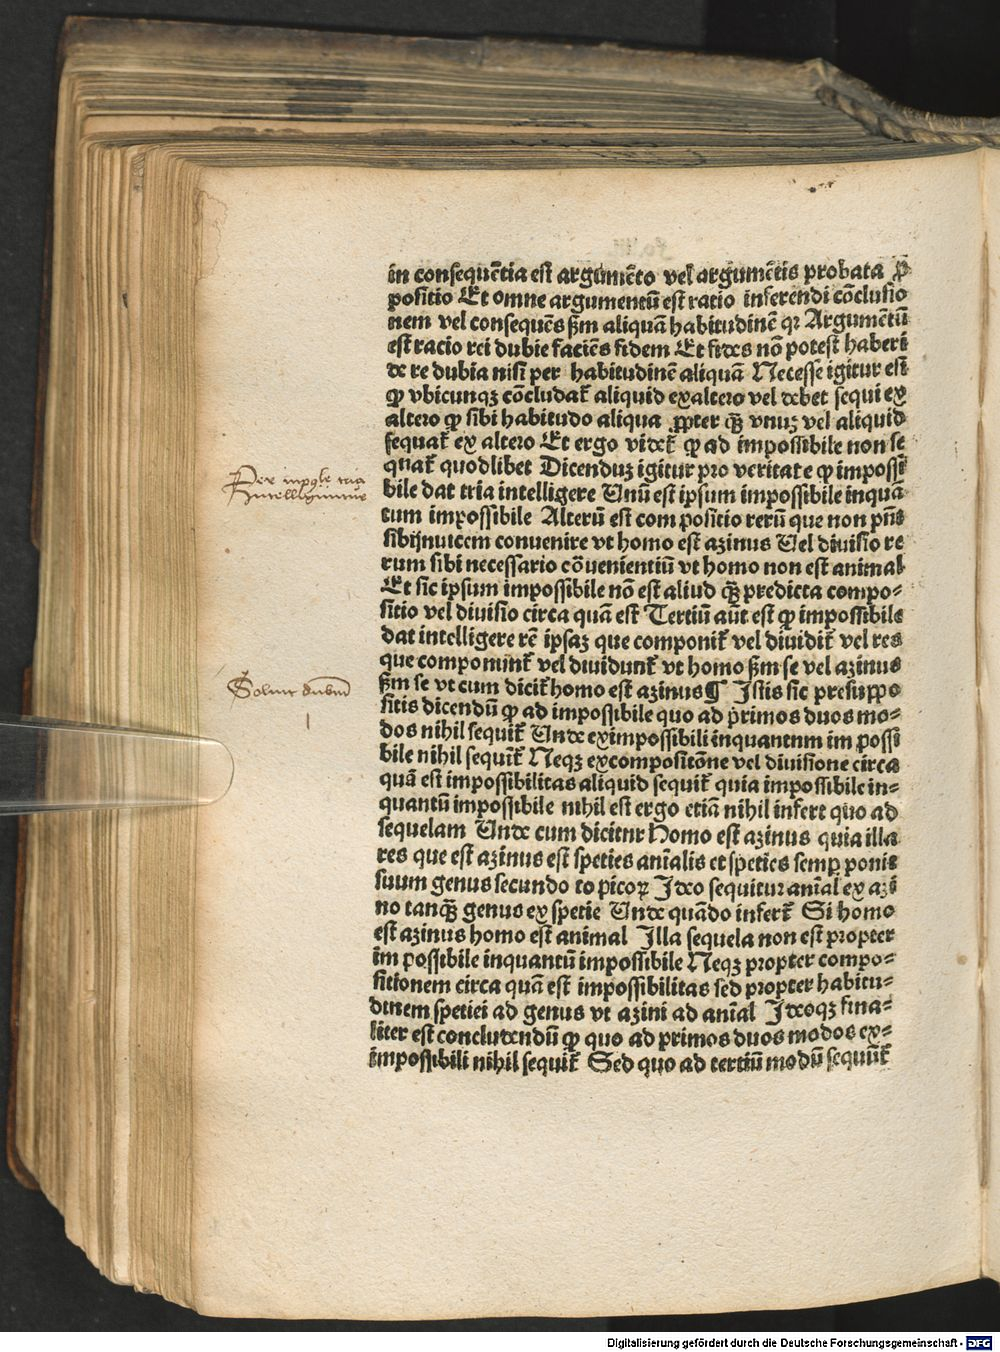 in consequētia est argumēto vel argumētis probata ꝓ
positio Et omne argumentū est ratio inferendi cōclusio
nem vel consequēs ẜm aliquā habitudinē qꝛ Argumētū
est racio rei dubie faciēs fidem Et fides nō potest haberi
de re dubia nisi per habitudinē aliquā Necesse igitur est
ꝙ vbicunqꝫ cōcludat̄ aliquid exaltero vel debet sequi ex
altero ꝙ sibi habitudo aliqua ꝓpter quā vnuꝫ vel aliquid
sequat̄ ex altero Et ergo videt̄ ꝙ ad impossibile non se
quat̄ quodlibet Dicenduꝫ igitur pro veritate ꝙ impossi
bile dat tria intelligere Unū est ipsum impossibile inquā
tum impossibile Alterū est compositio rerū que non pn̄t
sibijnuicem conuenire vt homo est azinus Uel diuisio re
rum sibi necessario cōuenientiū vt homo non est animal
Et sic ipsum impossibile nō est aliud qꝫ predicta compo-
sitio vel diuisio circa quā est Tertiū aūt est ꝙ impossibile
dat intelligere rē ipsaꝫ que componit̄ vel diuidit̄ vel res
que componunt̄ vel diuidunt̄ vt homo ẜm se vel azinus
ẜm se vt cum dicit̄ homo est azinus¶ Istis sic presuppo
sitis dicendū ꝙ ad impossibile quo ad primos duos mo-
dos nihil sequit̄ Unde eximpossibili inquantum im possi
bile nihil sequit̄ Neqꝫ excompositōne vel diuisione circa
quā est impossibilitas aliquid sequit̄ quia impossibile in-
quantū impossibile nihil est ergo etiā nihil infert quo ad
sequelam Unde cum dicitur Homo est azinus quia illa
res que est azinus est species anīalis et species semꝑ ponit
suum genus secundo topicoꝝ Ideo sequitur anīal ex azi
no tanqꝫ genus ex specie Unde quādo infert̄ Si homo
est azinus homo est animal Illa sequela non est propter
im possibile inquantū impossibile Neqꝫ propter compo-
sitionem circa quā est impossibilitas sed propter habitu-
dinem speciei ad genus vt azini ad anīal Ideoqꝫ fina-
liter est concludendū ꝙ quo ad primos duos modos ex-
impossibili nihil sequit̄ Sed quo ad tertiū modū sequit̄
Per inpole tria
Intelliguntur
Soluit dubiū
Digitalisierung gefördert durch die Deutsche Forschungsgemeinschaft - DFG